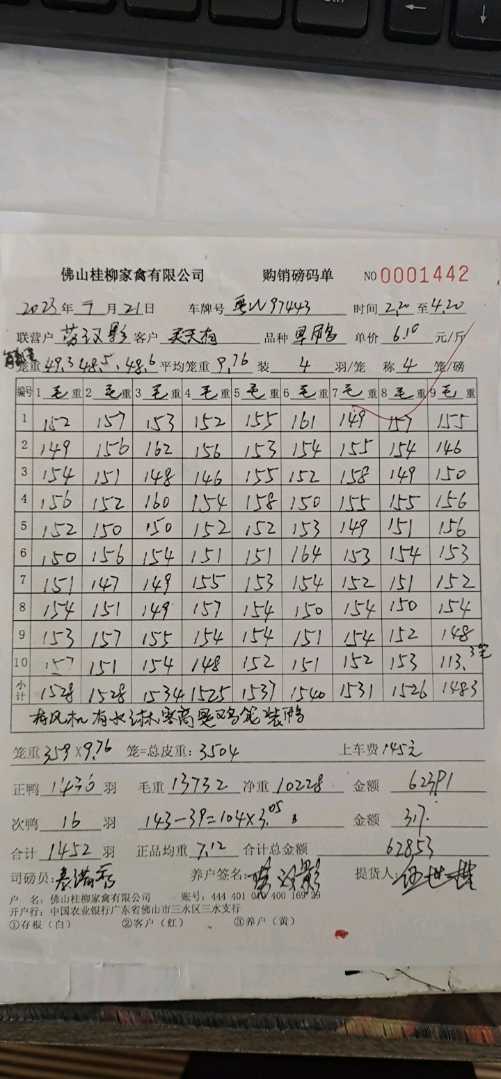 佛山桂柳家禽有限公司 购销磅码单 NO 0001442
2023年9月21日 车牌号 粤W97443 时间 2.20 至 4.20
联营户 客户 品种 单价 6.10 元/斤
笼重 49.3 48.5 48.6 平均笼重 9.76 装 4 羽/笼 称 4 笼/磅
编号 1 毛重 2 毛重 3 毛重 4 毛重 5 毛重 6 毛重 7 毛重 8 毛重 9 毛重
1 152 157 153 152 155 161 149 157 155
2 149 156 162 156 153 154 155 154 146
3 154 151 148 146 155 152 158 149 150
4 156 152 160 154 158 150 155 155 156
5 152 150 150 152 152 153 149 151 156
6 150 156 154 151 151 164 153 154 153
7 151 147 149 155 153 154 152 151 152
8 154 151 149 157 154 150 154 150 154
9 153 157 155 154 154 151 154 152 148
10 157 151 154 148 152 151 152 153 113. 3笼
小计 1528 1528 1534 1525 1537 1540 1531 1526 1483
笼重 359×9.76 笼=总皮重: 3504 上车费 145元
正鸭 1436 羽 毛重 13732 净重 10228 金额 62391
次鸭 16 羽 143-39=104×3.05 金额 317.
合计 1452 羽 正品均重 7.12 合计总金额 62853
司磅员: 养户签名: 提货人:
户 名: 佛山桂柳家禽有限公司 账号: 444 401 040 400 169 29
开户行: 中国农业银行广东省佛山市三水区三水支行
①存根（白） ②客户（红） ③养户（黄）